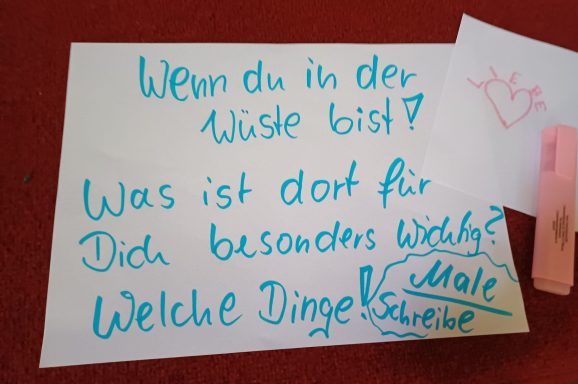 Wenn du in der
Wüste bist!
Was ist dort für
Dich besonders wichtig?
Welche Dinge!
Male
Schreibe
LIEBE